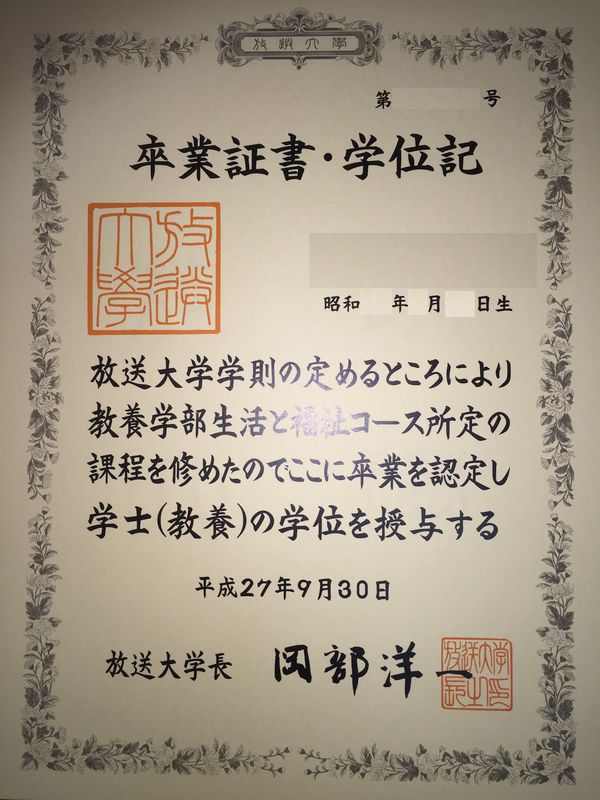 放送大學
第 号
卒業証書・学位記
放送大學
昭和 年 月 日生
放送大学学則の定めるところにより
教養学部生活と福祉コース所定の
課程を修めたのでここに卒業を認定し
学士(教養)の学位を授与する
平成27年9月30日
放送大学長 岡部洋一
放送大学長之印